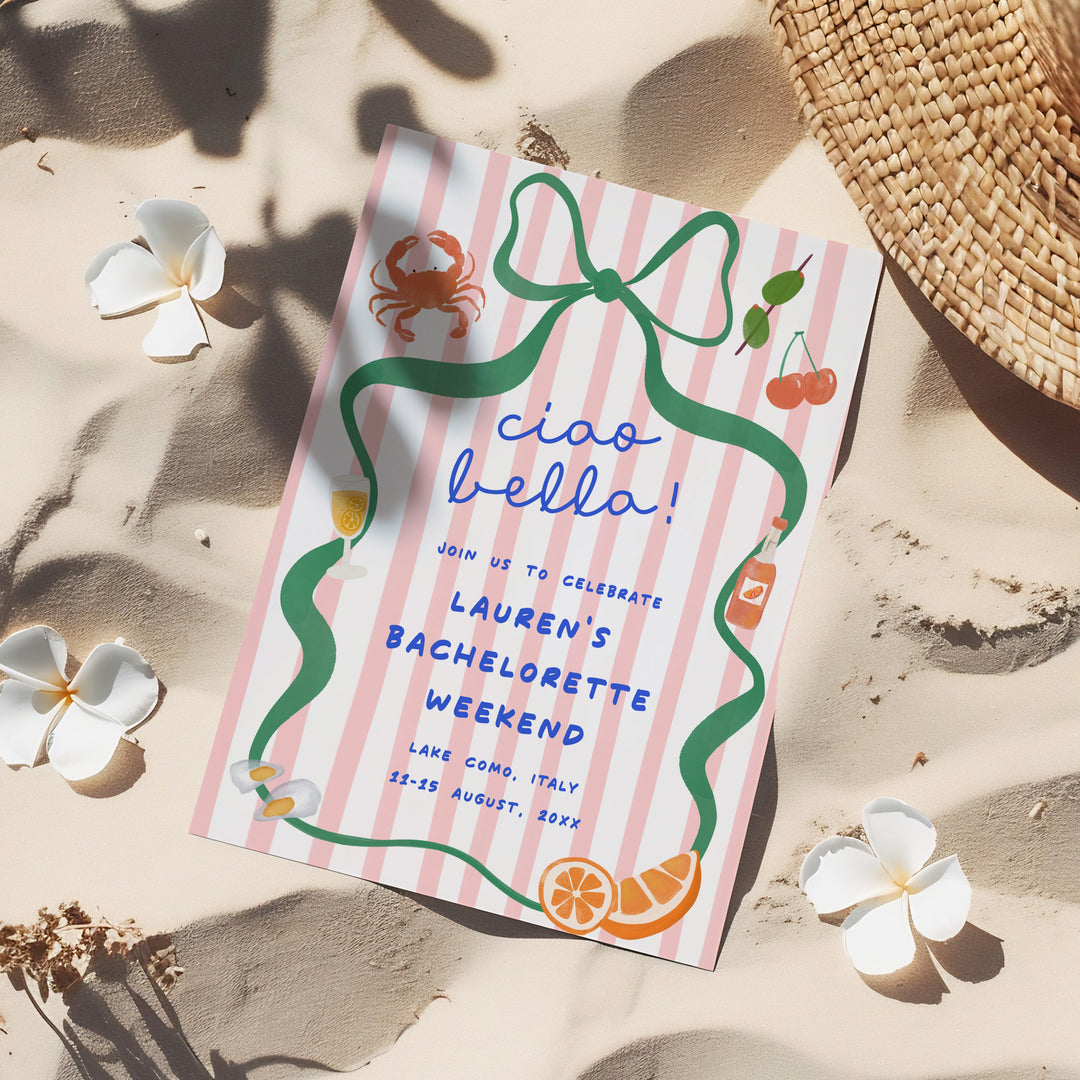 ciao
bella!
JOIN US TO CELEBRATE
LAUREN'S
BACHELORETTE
WEEKEND
LAKE COMO, ITALY
11-15 AUGUST, 20XX